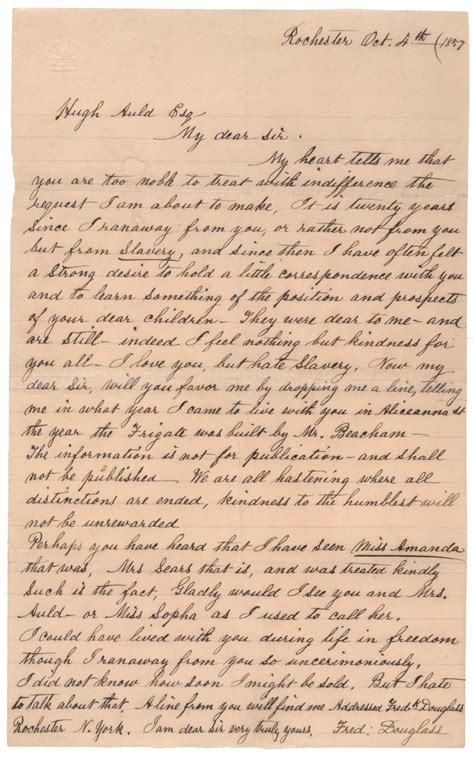 Rochester Oct. 4th (1857
Hugh Auld Esq
My dear sir.
My heart tells me that
you are too noble to treat with indifference the
request I am about to make, It is twenty years
since I ranaway from you, or rather not from you
but from Slavery, and since then I have often felt
a strong desire to hold a little correspondence with you
and to learn something of the position and prospects
of your dear children— They were dear to me— and
are still— indeed I feel nothing but kindness for
you all— I love you, but hate Slavery. Now my
dear Sir, will you favor me by dropping me a line, telling
me in what year I came to live with you in Aliceanna st
the year the Frigate was built by Mr. Beacham—
The information is not for publication— and shall
not be published We are all hastening where all
distinctions are ended, kindness to the humblest will
not be unrewarded
Perhaps you have heard that I have seen Miss Amanda
that was, Mrs Sears that is, and was treated kindly
Such is the fact, Gladly would I see you and Mrs.
Auld— or Miss Sopha as I used to call her.
I could have lived with you during life in freedom
though I ranaway from you so uncerimoniously,
I did not know how soon I might be sold. But I hate
to talk about that. A line from you will find me Addressed Fredk Douglass
Rochester N. York. I am dear sir very truly yours. Fred: Douglass